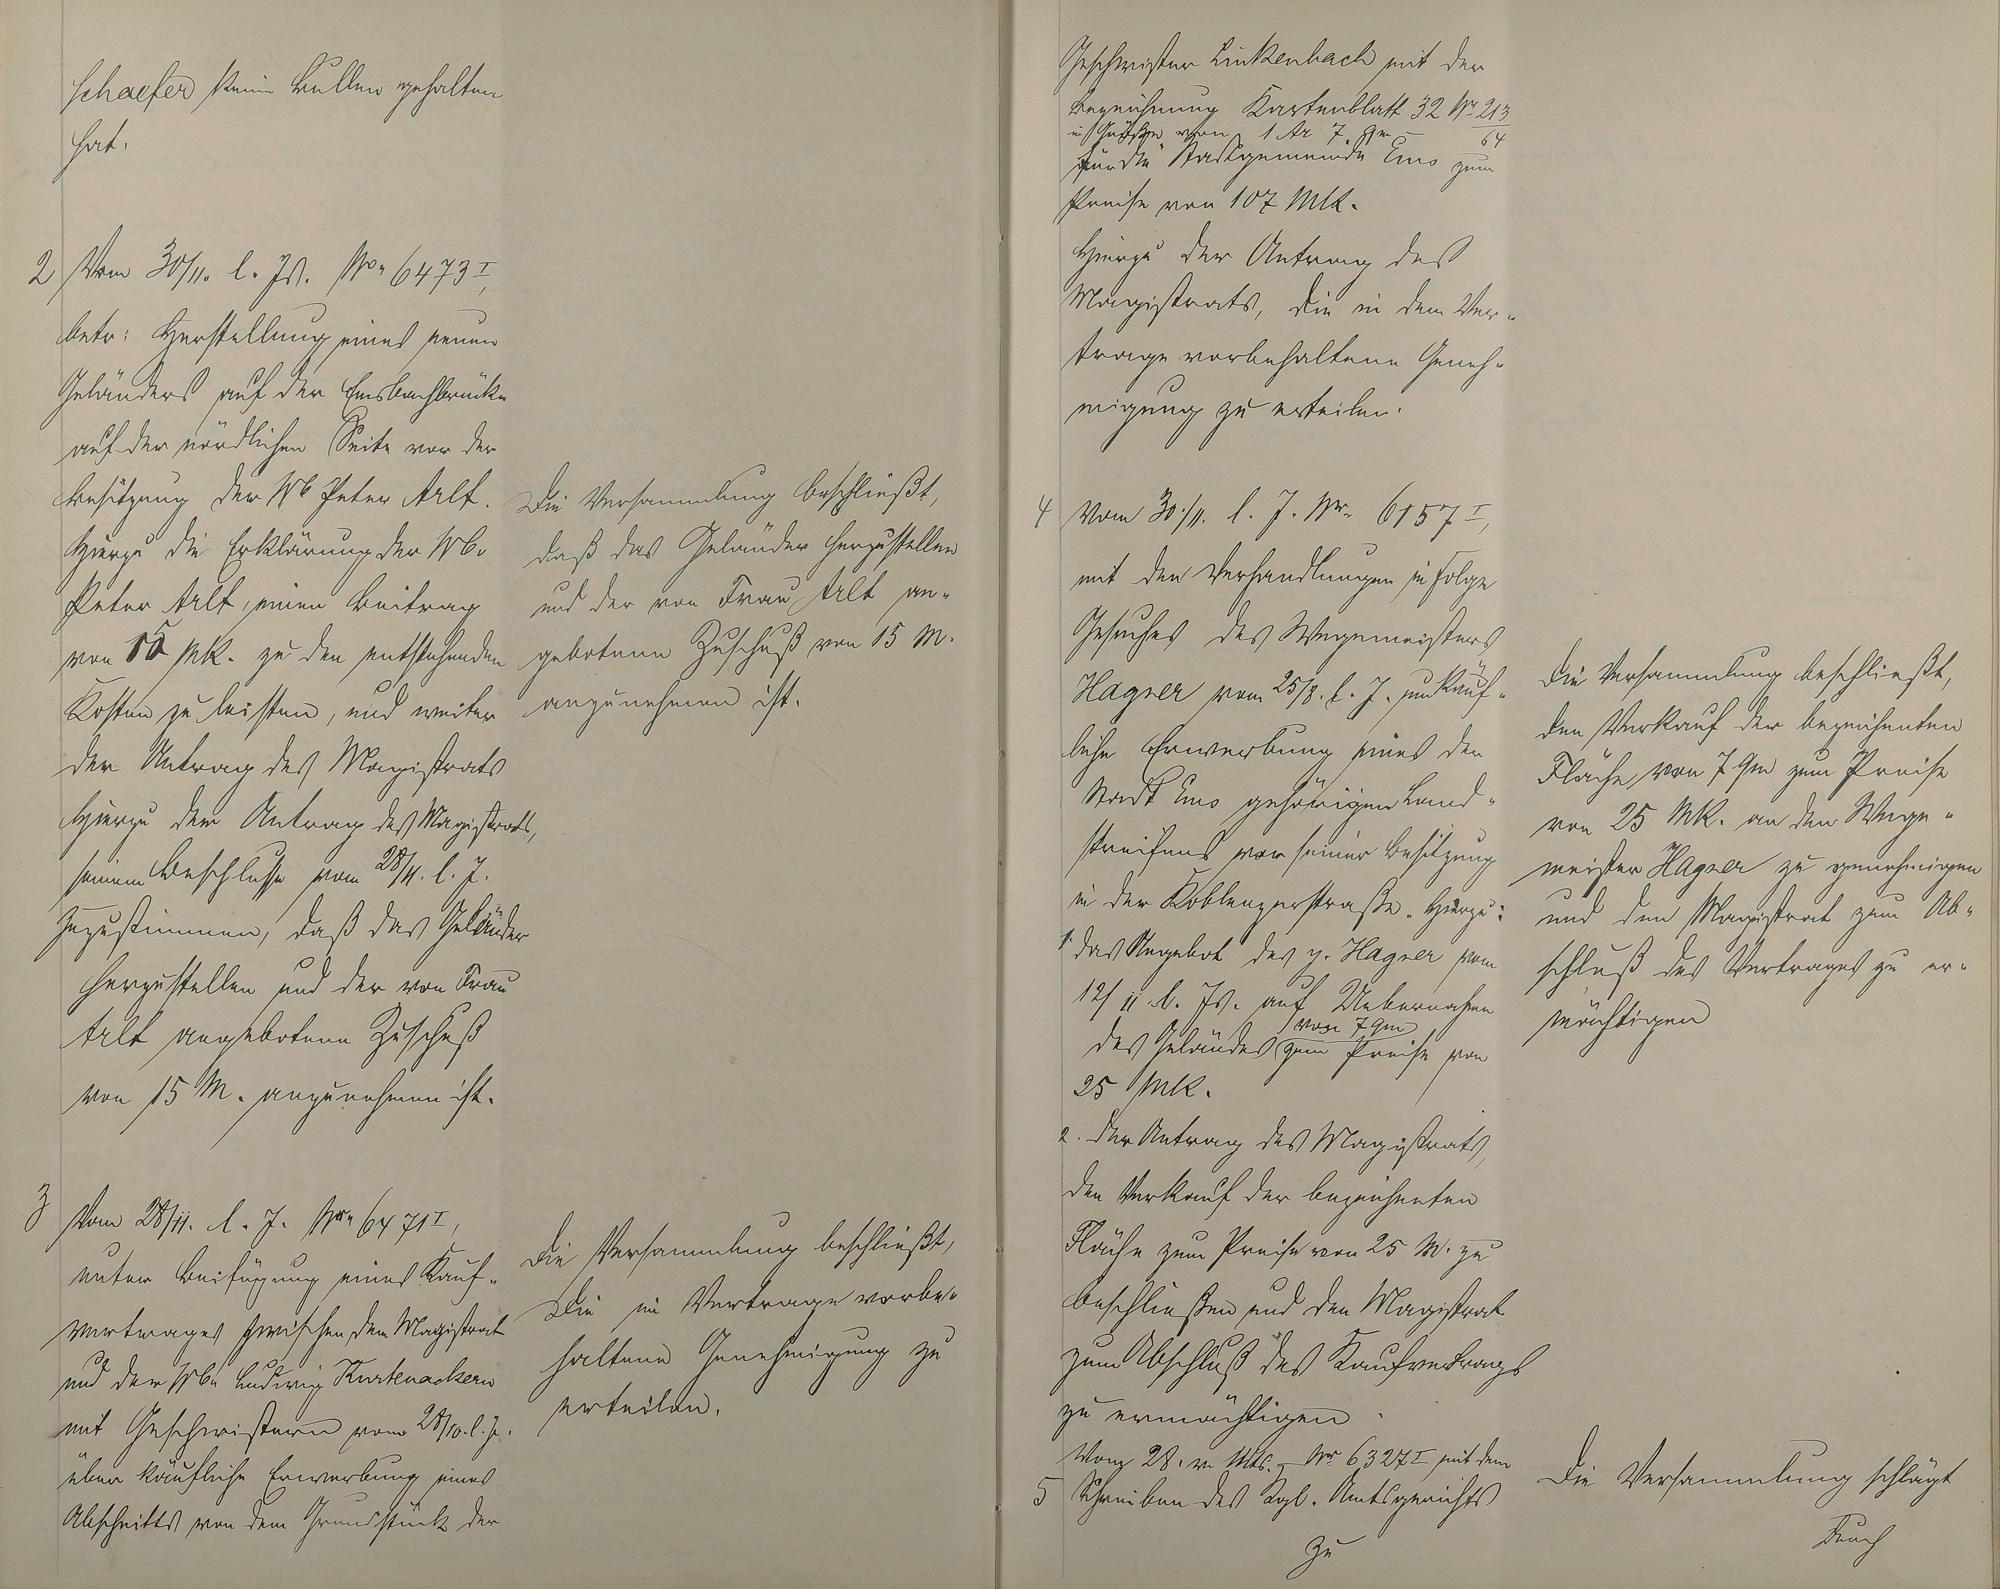 Schaefer keine Bullen gehalten
hat.
2 Vom 30/11. l. Js. No. 6473 I,
betr: Herstellung eines neuen
Geländers auf der Emsbachbrücke
auf der nördlichen Seite vor der
Besitzung der Wb Peter Alt.
Hierzu die Erklärung der Wb.
Peter Alt, einen Beitrag
von 15 Mk. zu den entstehenden
Kosten zu leisten, und weiter
der Antrag des Magistrats
Hierzu der Antrag des Magistrats,
seinem Beschlusse vom 28/11. l. J.
zuzustimmen, daß das Geländer
herzustellen und der von Frau
Alt angebotene Zuschuß
von 15 M. anzunehmen ist.
Die Versammlung beschließt,
daß das Geländer herzustellen
und der von Frau Alt an-
gebotene Zuschuß von 15 M.
anzunehmen ist.
3 Vom 28/11. l. J. No. 6471 I,
unter Beifügung eines Kauf-
vertrages zwischen dem Magistrat
und der Wb. Ludwig Kurtenacker
mit Geschwistern vom 28/10. l. J.
über käufliche Erwerbung eines
Abschnitts von dem Grundstück der
Die Versammlung beschließt,
die im Vertrage vorbe-
haltene Genehmigung zu
erteilen.
Geschwister Linkenbach mit der
Bezeichnung Kartenblatt 32 Nr. 213/64
in Größe von 1 Ar 7 qm
für die Stadtgemeinde Ems zum
Preise von 107 Mk.
Hierzu der Antrag des
Magistrats, die in dem Ver-
trage vorbehaltene Geneh-
migung zu erteilen.
4 Vom 30/11. l. J. Nr. 6157 I,
mit den Verhandlungen in Folge
Gesuches des Wegemeisters
Hagner vom 25/8. l. J. um käuf-
liche Erwerbung eines der
Stadt Ems gehörigen Land-
streifens vor seiner Besitzung
in der Koblenzerstraße. Hierzu:
1. das Angebot des p. Hagner vom
12/11 l. Js. auf Uebernahme
des Geländes von 7 qm zum Preise von
25 Mk.
2. der Antrag des Magistrats,
den Verkauf der bezeichneten
Fläche zum Preise von 25 M. zu
beschließen und den Magistrat
zum Abschluß des Kaufvertrags
zu ermächtigen.
Die Versammlung beschließt,
den Verkauf der bezeichneten
Fläche von 7 qm zum Preise
von 25 Mk. an den Wege-
meister Hagner zu genehmigen
und den Magistrat zum Ab-
schluß des Vertrages zu er-
mächtigen
Vom 28. v. Mts. Nr 6327 I mit dem
5 Schreiben des Kgl. Amtsgerichts
zu
Die Versammlung schlägt
durch